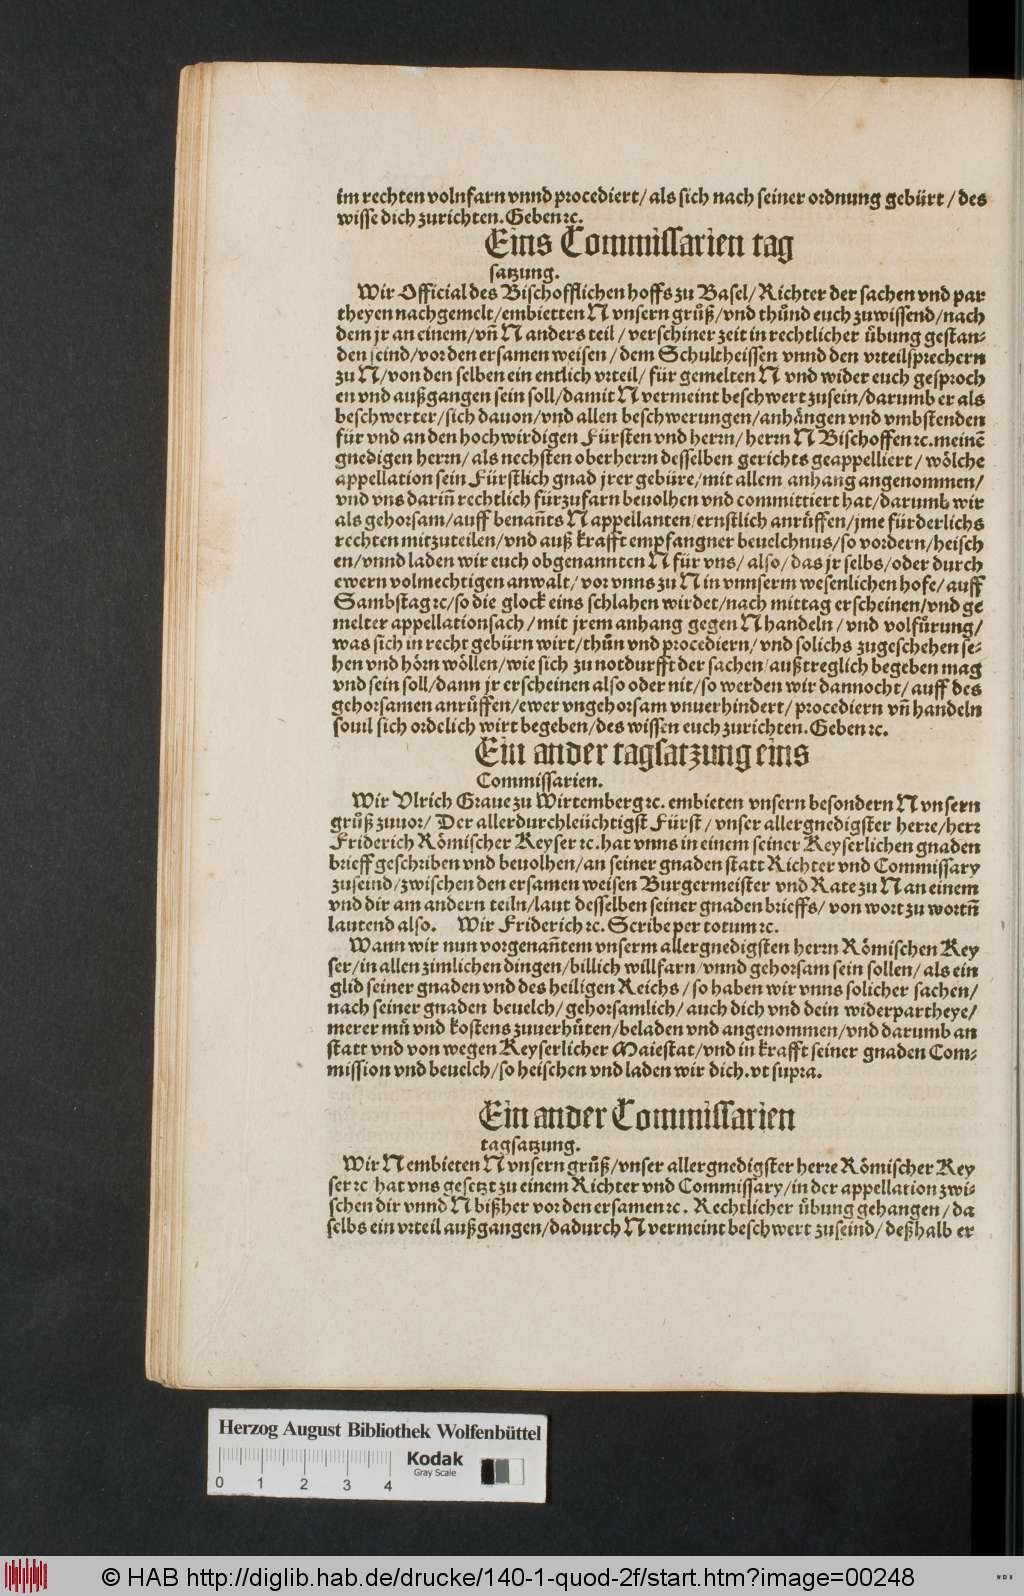 im rechten volnfarn vnnd procediert/ als sich nach seiner ordnung gebürt / des
wisse dich zurichten. Geben ꝛc.
Eins Commissarien tag
satzung.
Wir Official des Bischofflichen hoffs zu Basel/ Richter der sachen vnd par
theyen nachgemelt/ embietten N vnsern grůß/ vnd thůnd euch zuwissend/ nach
dem jr an einem/ vñ N anders teil / verschiner zeit in rechtlicher übung gestan⸗
den seind/ vor den ersamen weisen / dem Schultheissen vnnd den vrteilsprechern
zu N/ von den selben ein entlich vrteil/ für gemelten N vnd wider euch gesproch
en vnd außgangen sein soll/ damit N vermeint beschwert zusein/ darumb er als
beschwerter/ sich dauon/ vnd allen beschwerungen/ anhängen vnd vmbstenden
für vnd an den hochwirdigen Fürsten vnd herrn/ herrn N Bischoffen ꝛc. meinẽ
gnedigen herrn/ als nechsten oberherrn desselben gerichts geappelliert / wölche
appellation sein Fürstlich gnad jrer gebüre/ mit allem anhang angenommen/
vnd vns dariñ rechtlich fürzufarn beuolhen vnd committiert hat/ darumb wir
als gehorsam/ auff benañts N appellanten/ ernstlich anrůffen/ jme fürderlichs
rechten mitzuteilen/ vnd auß krafft empfangner beuelchnus/ so vordern/ heisch
en/ vnnd laden wir euch obgenannten N für vns/ also/ das jr selbs/ oder durch
ewern volmechtigen anwalt/ vor vnns zu N in vnnserm wesenlichen hofe/ auff
Sambstag ꝛc/ so die glock eins schlahen wirdet/ nach mittag erscheinen/ vnd ge
melter appellationsach / mit jrem anhang gegen N handeln / vnd volfůrung/
was sich in recht gebürn wirt/ thůn vnd procediern/ vnd solichs zugeschehen se⸗
hen vnd hörn wöllen/ wie sich zu notdurfft der sachen/ außtreglich begeben mag
vnd sein soll/ dann jr erscheinen also oder nit/ so werden wir dannocht/ auff des
gehorsamen anrůffen/ ewer vngehorsam vnuerhindert/ procediern vñ handeln
souil sich ordelich wirt begeben/ des wissen euch zurichten. Geben ꝛc.
Ein ander tagsatzung eins
Commissarien.
Wir Vlrich Graue zu Wirtemberg ꝛc. embieten vnsern besondern N vnsern
grůß zuuor/ Der allerdurchleüchtigst Fürst / vnser allergnedigster herre/ herr
Friderich Römischer Keyser ꝛc. hat vnns in einem seiner Keyserlichen gnaden
brieff geschriben vnd beuolhen/ an seiner gnaden statt Richter vnd Commissary
zuseind/ zwischen den ersamen weisen Burgermeister vnd Rate zu N an einem
vnd dir am andern teiln/ laut desselben seiner gnaden brieffs/ von wort zu wortñ
lautend also. Wir Friderich ꝛc. Scribe per totum ꝛc.
Wann wir nun vorgenañtem vnserm allergnedigsten herrn Römischen Key
ser/ in allen zimlichen dingen/ billich willfarn/ vnnd gehorsam sein sollen/ als ein
glid seiner gnaden vnd des heiligen Reichs / so haben wir vnns solicher sachen/
nach seiner gnaden beuelch/ gehorsamlich/ auch dich vnd dein widerpartheye/
merer mů vnd kostens zuuerhůten/ beladen vnd angenommen/ vnd darumb an
statt vnd von wegen Keyserlicher Maiestat/ vnd in krafft seiner gnaden Com⸗
mission vnd beuelch/ so heischen vnd laden wir dich. vt supra.
Ein ander Commissarien
tagsatzung.
Wir N embieten N vnsern grůß/ vnser allergnedigster herre Römischer Key
ser ꝛc hat vns gesetzt zu einem Richter vnd Commissary/ in der appellation zwi⸗
schen dir vnnd N bißher vor den ersamen ꝛc. Rechtlicher übung gehangen / da
selbs ein vrteil außgangen/ dadurch N vermeint beschwert zuseind/ deßhalb er
Herzog August Bibliothek Wolfenbüttel
Kodak
Gray Scale
0 1 2 3 4
© HAB http://diglib.hab.de/drucke/140-1-quod-2f/start.htm?image=00248